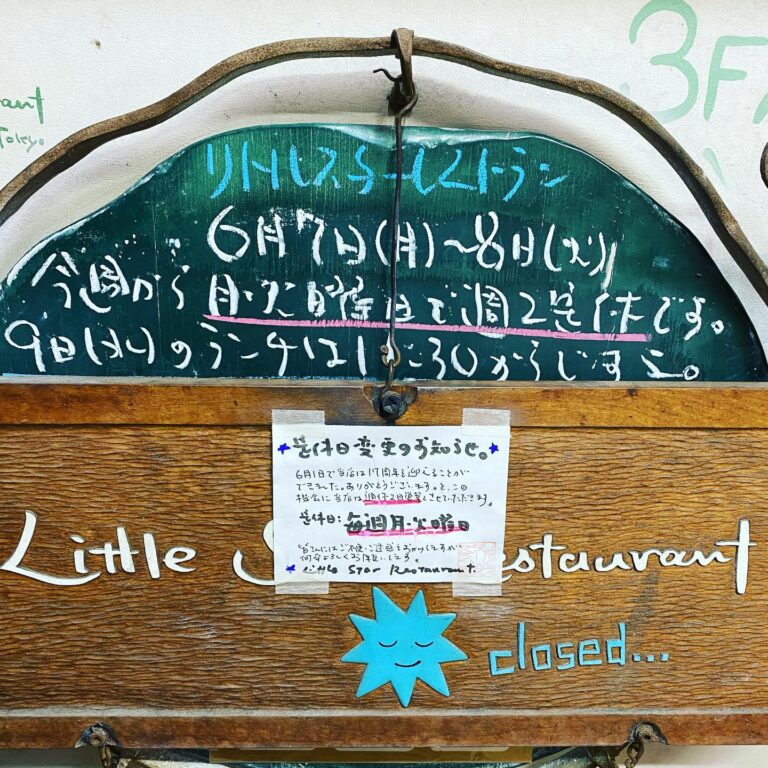 3F
Tokyo.
リトルスターレストラン
6月7日(月)〜8日(火)
今週から月・火曜休で週2定休です。
9日(水)のランチは11:30からじすこ。
定休日変更のお知らせ。
6月1日で当店は17周年を迎えることが
できました。ありがとうございます。と、この
機会に当店は週休2日営業とさせていただきます。
定休日:毎週月・火曜日
皆さんにはご不便・ご迷惑をおかけしますが
何卒よろしくお願いします。
Little Star Restaurant.
Little S estaurant
closed...